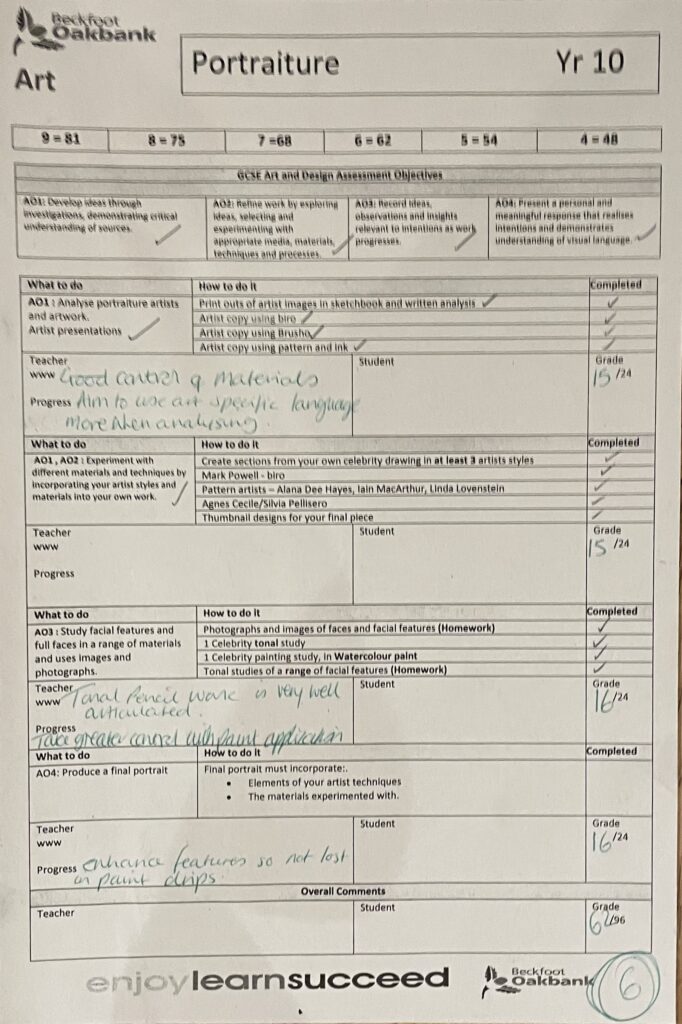 Beckfoot
Oakbank
Art
Portraiture Yr 10
9 = 81 8 = 75 7 =68 6 = 62 5 = 54 4 = 48
GCSE Art and Design Assessment Objectives
AO1: Develop ideas through
investigations, demonstrating critical
understanding of sources.
AO2: Refine work by exploring
ideas, selecting and
experimenting with
appropriate media, materials,
techniques and processes.
AO3: Record ideas,
observations and insights
relevant to intentions as work
progresses.
AO4: Present a personal and
meaningful response that realises
intentions and demonstrates
understanding of visual language.
What to do How to do it Completed
AO1 : Analyse portraiture artists
and artwork.
Artist presentations
Print outs of artist images in sketchbook and written analysis
Artist copy using biro
Artist copy using Brusho
Artist copy using pattern and ink
Teacher Student Grade
WWW Good control of materials 15/24
Progress Aim to use art specific language
more when analysing.
What to do How to do it Completed
AO1 , AO2 : Experiment with
different materials and techniques by
incorporating your artist styles and
materials into your own work.
Create sections from your own celebrity drawing in at least 3 artists styles
Mark Powell - biro
Pattern artists – Alana Dee Hayes, Iain MacArthur, Linda Lovenstein
Agnes Cecile/Silvia Pellisero
Thumbnail designs for your final piece
Teacher Student Grade
WWW 15/24
Progress
What to do How to do it Completed
AO3 : Study facial features and
full faces in a range of materials
and uses images and
photographs.
Photographs and images of faces and facial features (Homework)
1 Celebrity tonal study
1 Celebrity painting study, in Watercolour paint
Tonal studies of a range of facial features (Homework)
Teacher Student Grade
WWW Tonal Pencil work is very well
articulated. 16/24
Progress
Take greater control with paint application
What to do How to do it Completed
AO4: Produce a final portrait
Final portrait must incorporate:.
• Elements of your artist techniques
• The materials experimented with.
Teacher Student Grade
WWW 16/24
Progress enhance features so not lost
in paint drips.
Overall Comments
Teacher Student Grade
62/96
enjoylearnsucceed
Beckfoot
Oakbank
6